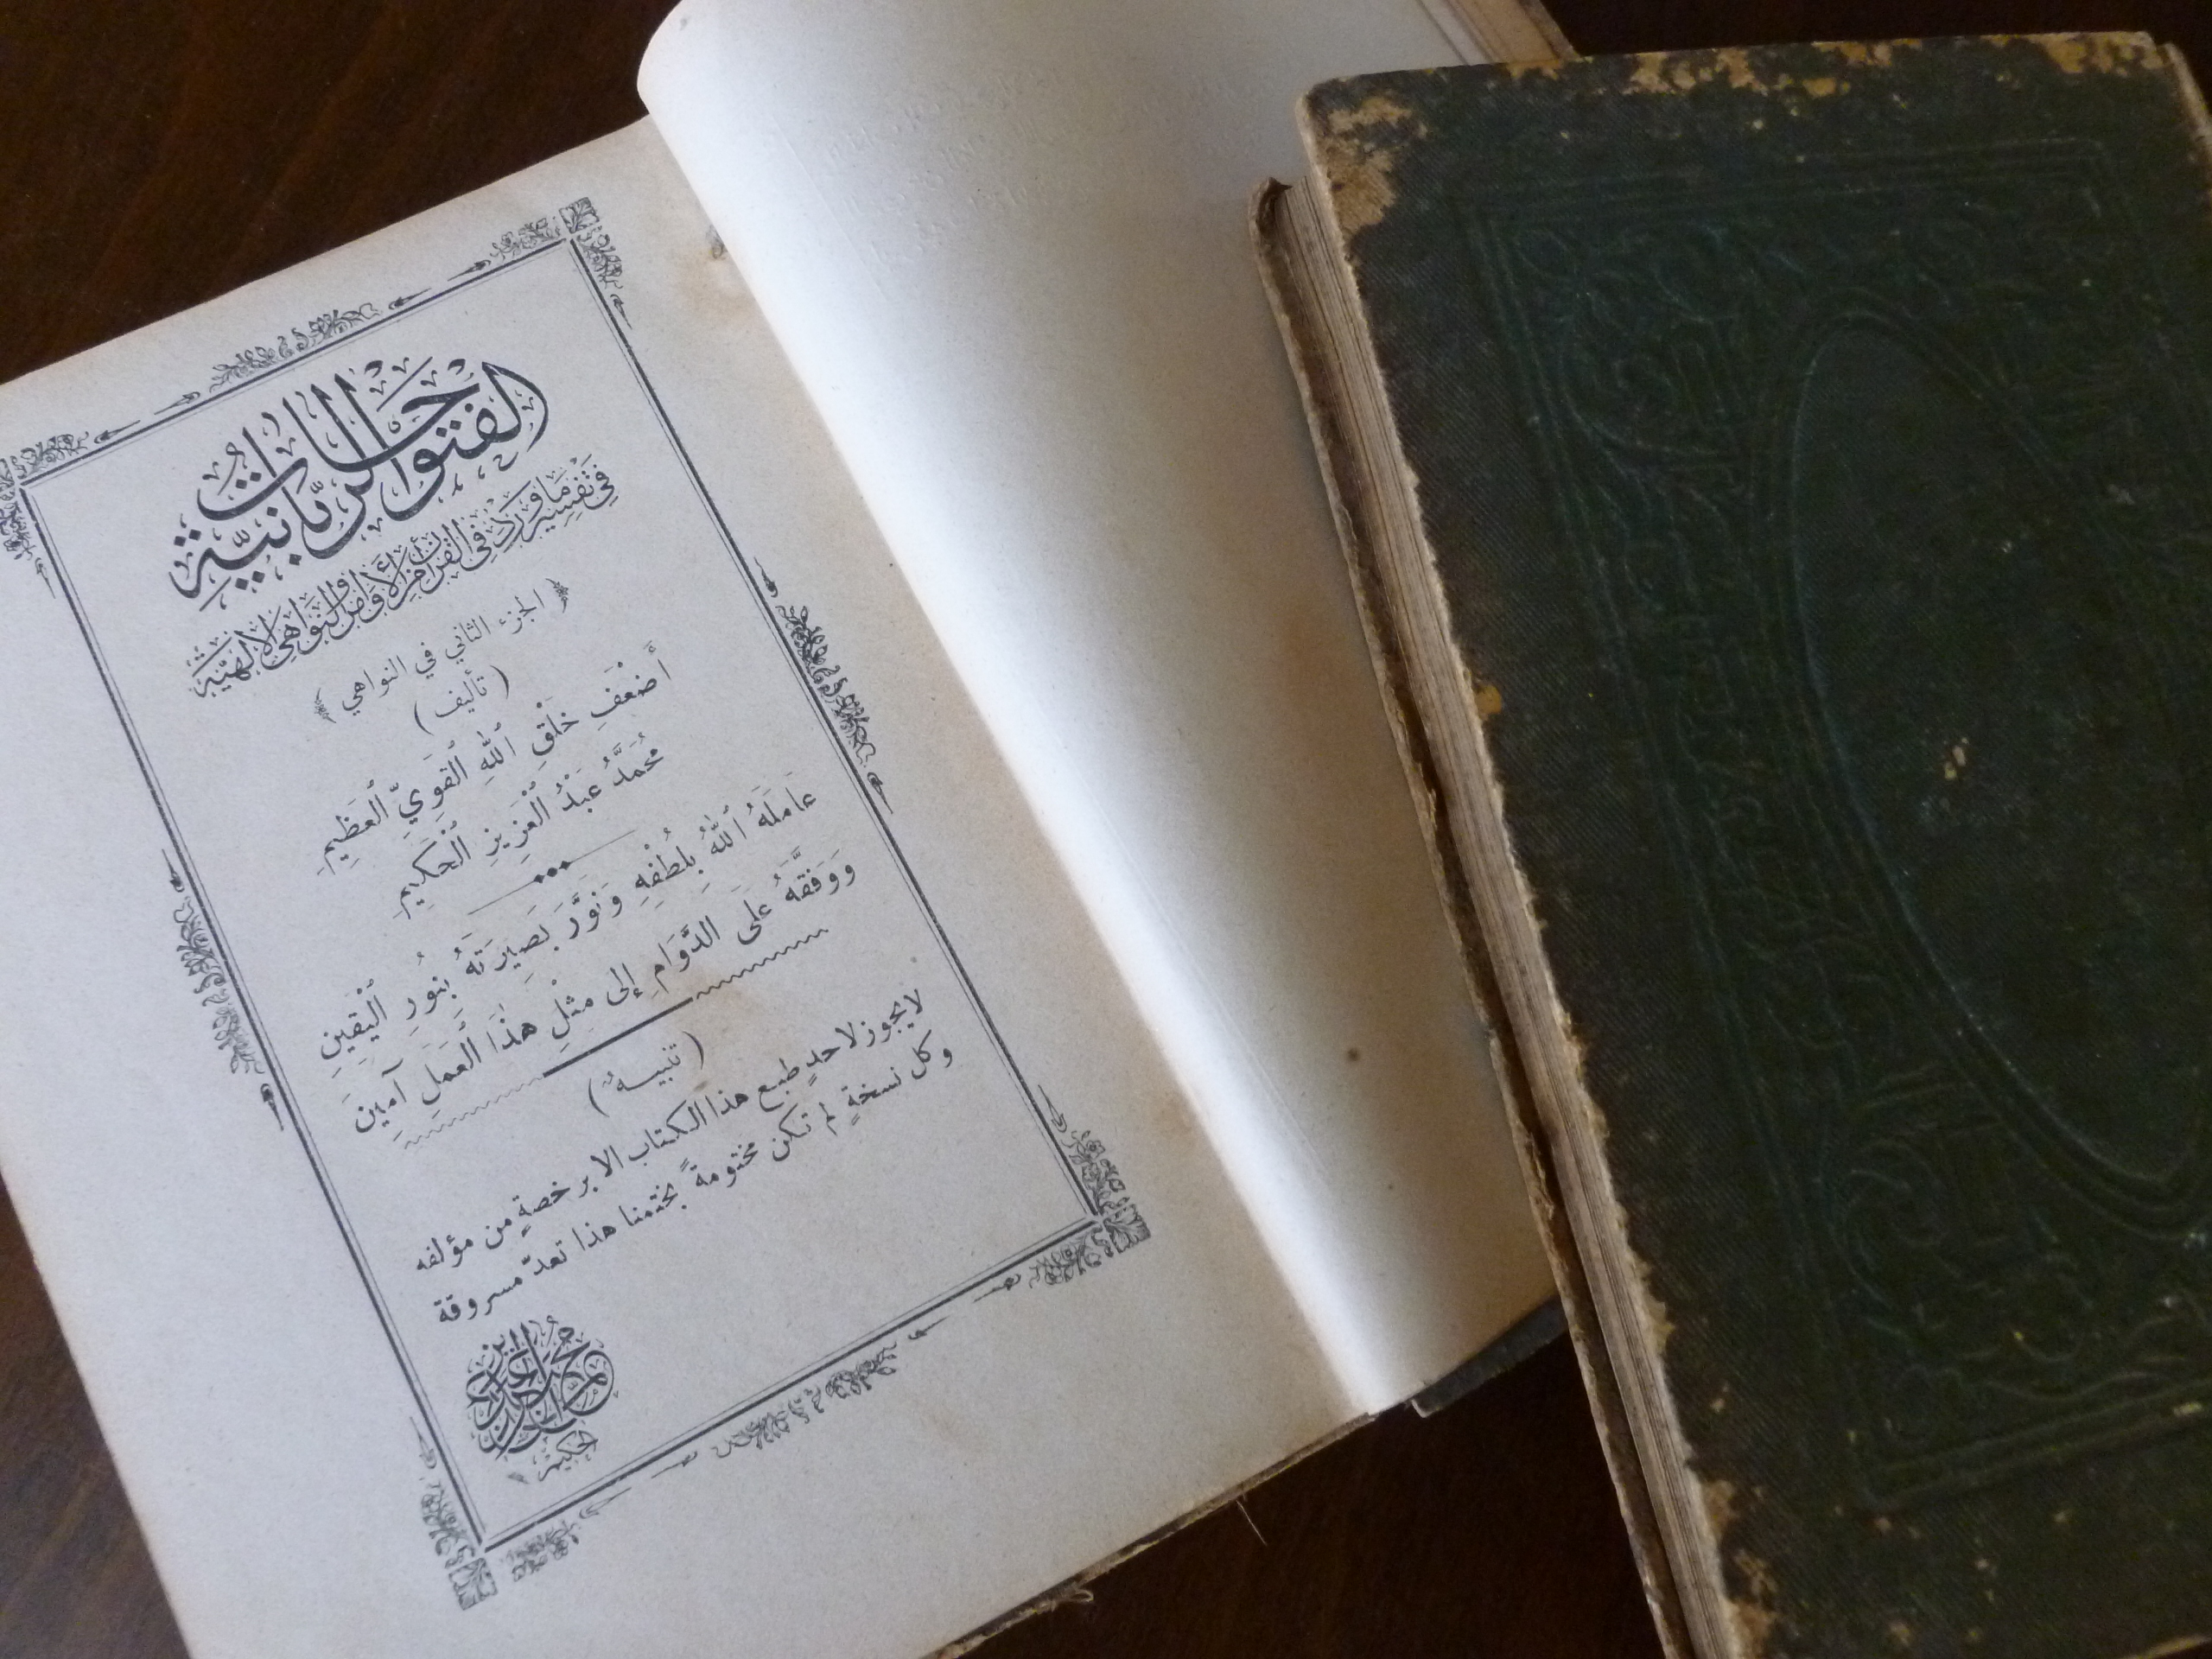 الفتوحات
الربانية
في تفسير ما ورد في القرآن من الأوامر والنواهي الإلهية
﴿ الجزء الثاني في النواهي ﴾
( تأليف )
أَضْعَفِ خَلْقِ ٱللهِ ٱلْقَوِيِّ ٱلْعَظِيمِ
مُحَمَّدُ عَبْدُ ٱلْعَزِيزِ ٱلْحَكِيمِ
عَامَلَهُ ٱللهُ بِلُطْفِهِ وَنَوَّرَ بَصِيرَتَهُ بِنُورِ ٱلْيَقِينِ
وَوَفَّقَهُ عَلَى الدَّوَامِ إِلى مِثْلِ هٰذَا ٱلْعَمَلِ آمِينَ
( تنبيه )
لا يجوز لاحدٍ طبع هذا الكتاب الا برخصةٍ من مؤلفه
وكل نسخةٍ لم تكن مختومةً بختمنا هذا تعدّ مسروقة
محمد عبد العزيز
الحكيم